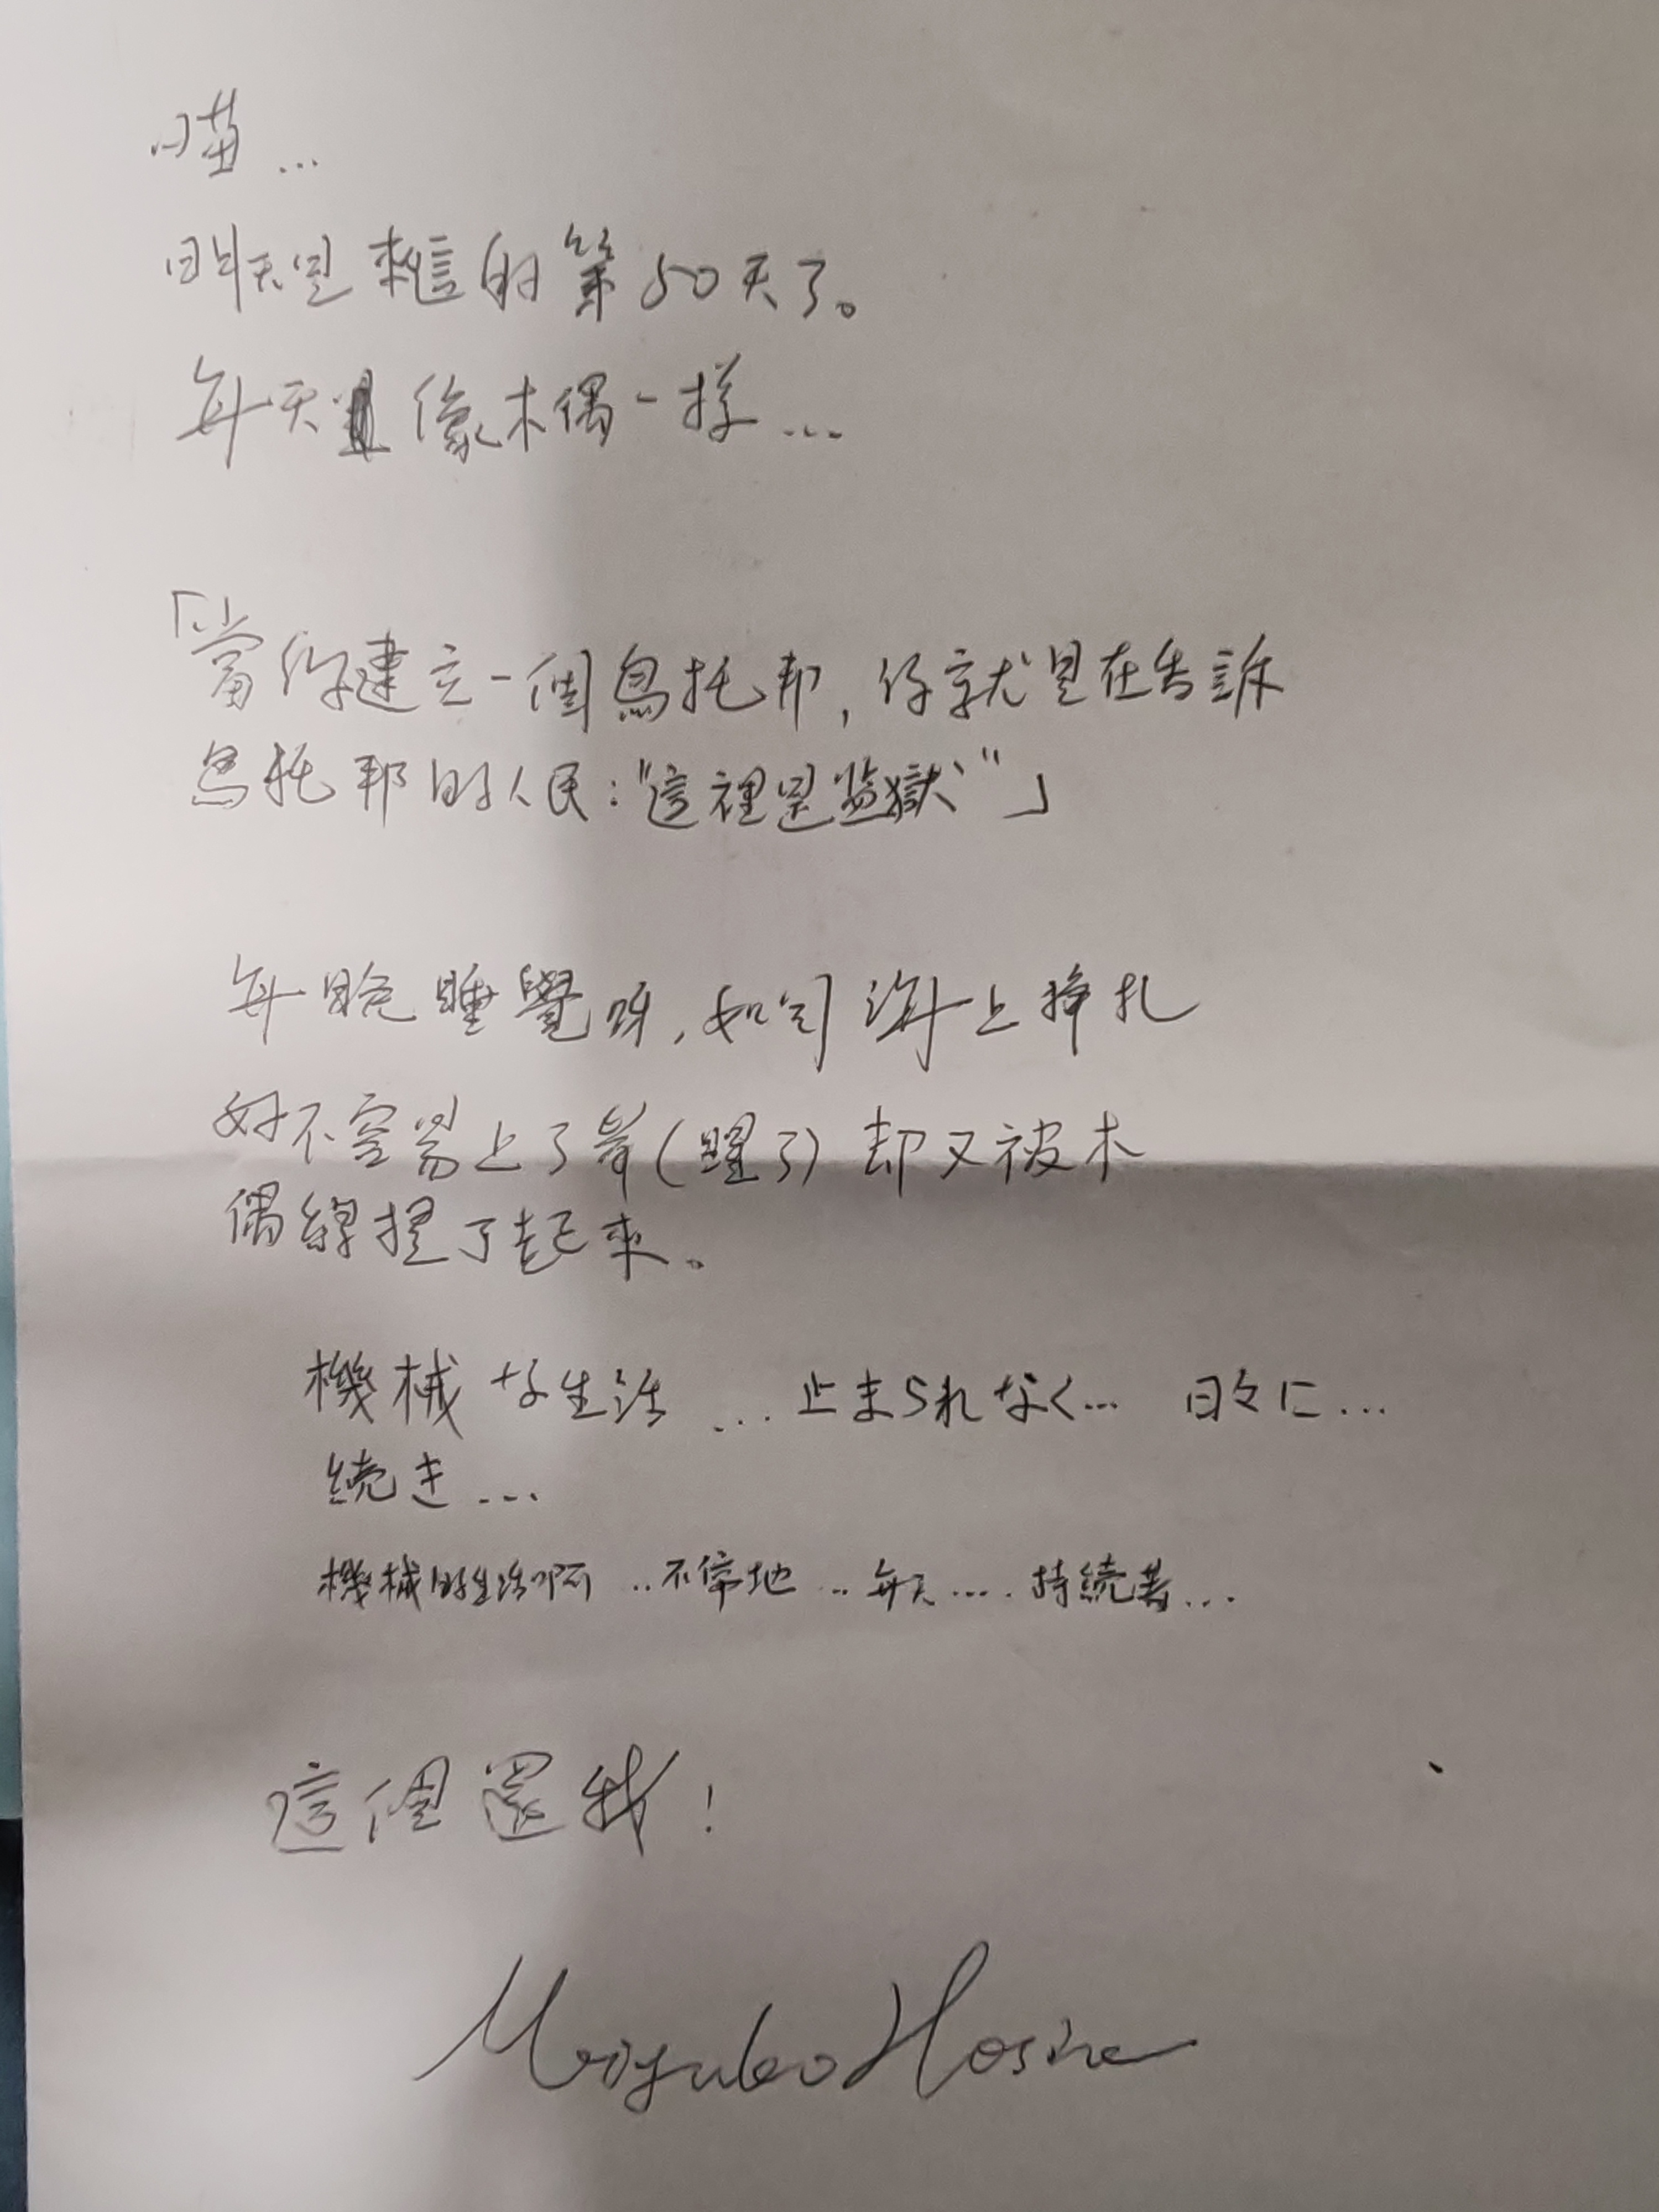 喵...
昨天是來這的第50天了。
每天像木偶一樣...
「當你建立一個烏托邦,你就是在告訴
烏托邦的人民:"這裡是監獄"」
每晚睡覺呀,如同海上掙扎
好不容易上了岸(醒了)却又被木
偶線提了起來。
機械な生活...止まられなく... 日々に...
続き...
機械的生活啊...不停地...每天....持続著...
這個還我!